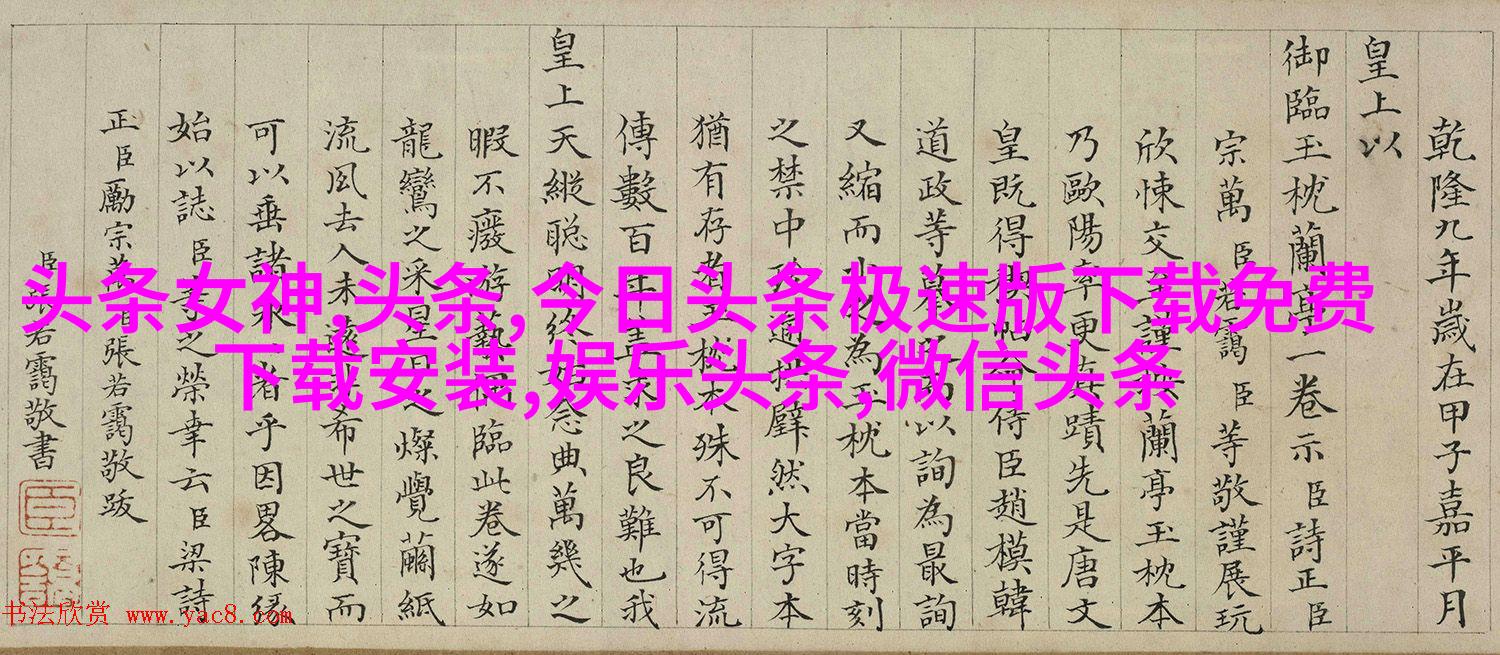 乾隆九年歲在甲子嘉平月
皇上以
御臨玉枕蘭亭一卷示臣詩正臣
宗萬臣若靄臣等敬謹展玩
欣悚交至謹蘭亭玉枕本
乃歐陽率更真蹟先是唐文
皇既得侍臣趙模韓
道政等以詢為最詢
又縮而小為玉枕本當時刻
之禁中璧然大字本
猶有存者玉枕本殊不可得流
傳數百年之良難也我
皇上天縱聰明念典萬幾之
暇不廢游藝臨此卷遂如
龍鸞之采之燦覺繭紙
流風去人未遠希世之寶而
可以垂諸者乎因畧陳緣
始以誌臣等之榮幸云臣梁詩
正臣勵宗萬臣張若靄敬跋
臣張若靄敬書
头条女神,头条,今日头条极速版下载免费
下载安装,娱乐头条,微信头条
书法欣赏 www.yac8.com